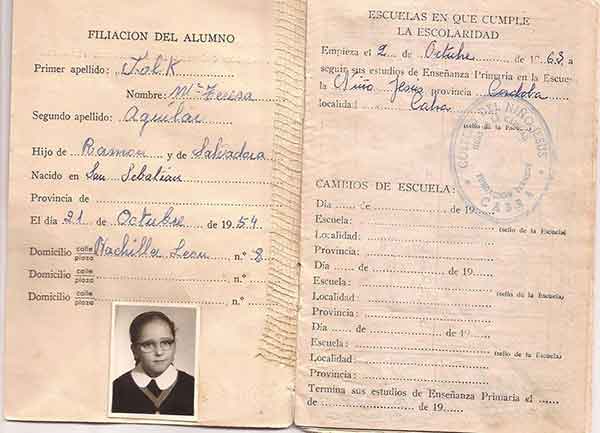 FILIACION DEL ALUMNO
Primer apellido: Tolk
Nombre: Mª Teresa
Segundo apellido: Aguilar
Hijo de Ramon y de Salvadora
Nacido en San Sebatian
Provincia de
El día 21 de Octubre de 1954
Domicilio calle plaza Machilla Leon n.º 8
Domicilio calle plaza
Domicilio calle plaza n.º
ESCUELAS EN QUE CUMPLE
LA ESCOLARIDAD
Empieza el 2 de Octubre de 1963 a
seguir sus estudios de Enseñanza Primaria en la Escue-
la Niño Jesus provincia Cordoba
localidad: Cabra
(sello de la Escuela)
NIÑO JESUS
CABRA
CAMBIOS DE ESCUELA:
Día de de 19
Escuela:
(sello de la Escuela)
Localidad:
Provincia:
Día de de 19
Escuela:
Localidad: (sello de la Escuela)
Provincia:
Día de de 19
Escuela:
(sello de la Escuela)
Localidad:
Provincia:
Termina sus estudios de Enseñanza Primaria el
de de 19